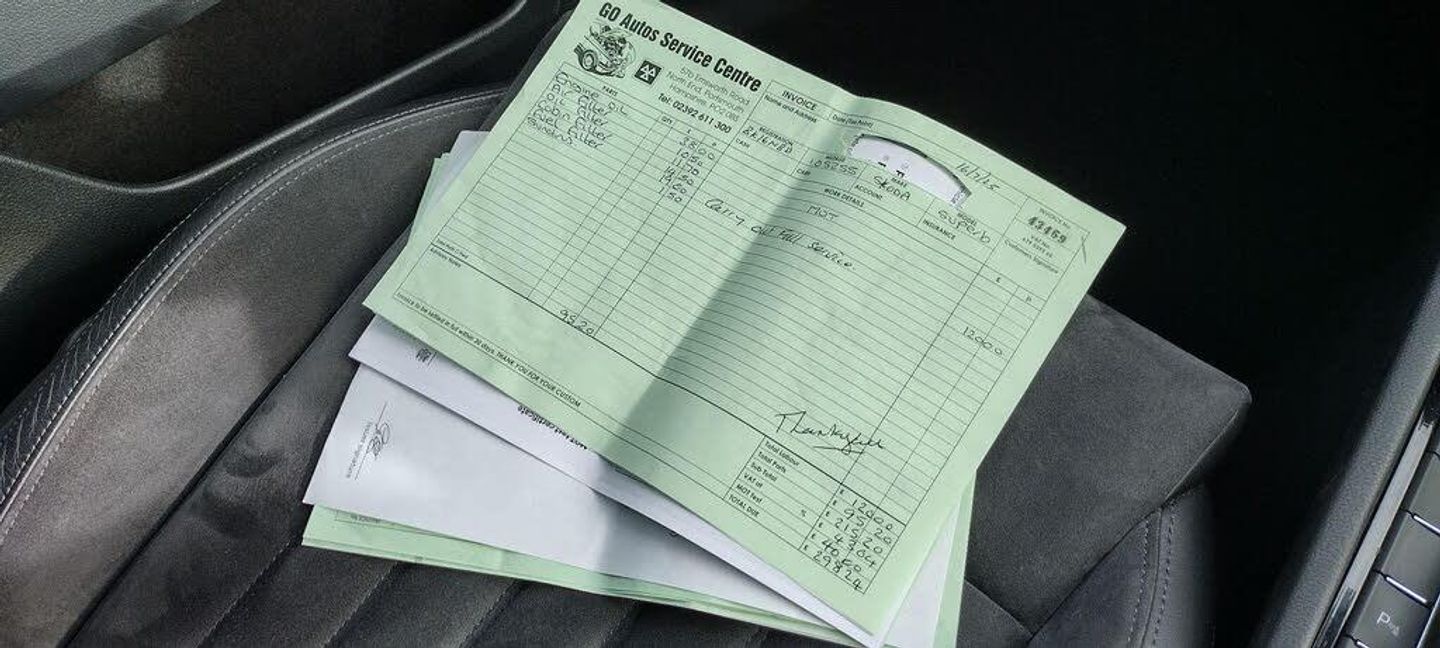 GO Autos Service Centre
57b Emsworth Road
North End, Portsmouth
Hampshire, PO2 0BS
Tel: 02392 611 300
INVOICE
Name and Address
Date (Tax Point)
16/7/25
INVOICE No.
43469
VAT No.
Customers Signature
REGISTRATION
MILEAGE
105255
MAKE
SKODA
MODEL
Superb
CASH
CARD
ACCOUNT
INSURANCE
PARTS
QTY
£
P
WORK DETAILS
£
P
Engine Oil 38.00
Air Filter 10.50
Oil Filter 11.70
Cabin Filter 14.50
Fuel Filter
Sundries 1.50
MOT
Carry out Full Service.
12000
95.20
Advisory Notes
Invoice to be settled in full within 30 days. THANK YOU FOR YOUR CUSTOM
Total Labour £ 12000
Total Parts £ 95.20
Sub Total £ 215.20
VAT at % £ 43.04
MOT Test £ 40.00
TOTAL DUE £ 298.24
MOT test certificate
P